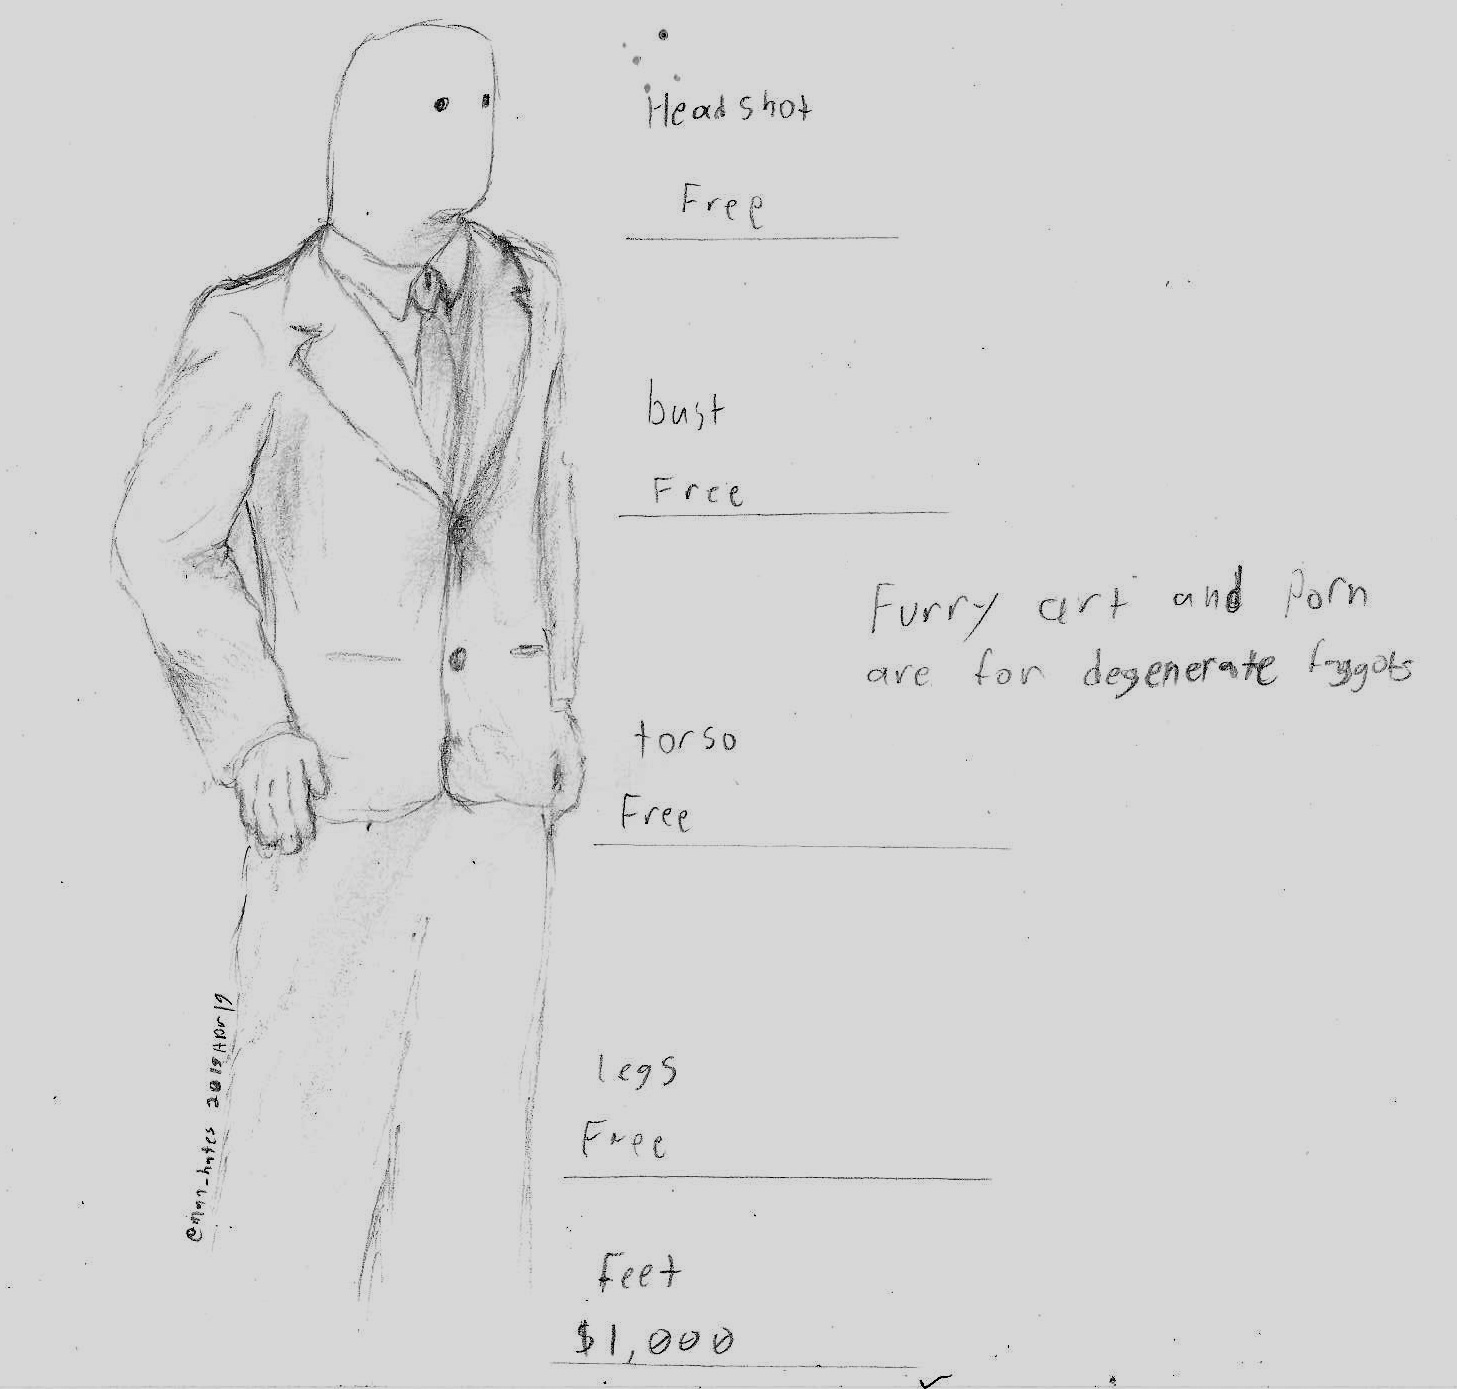 Headshot
Free
bust
Free
Furry art and Porn
are for degenerate faggots
torso
Free
legs
Free
Feet
$1,000
2019 Apr 19